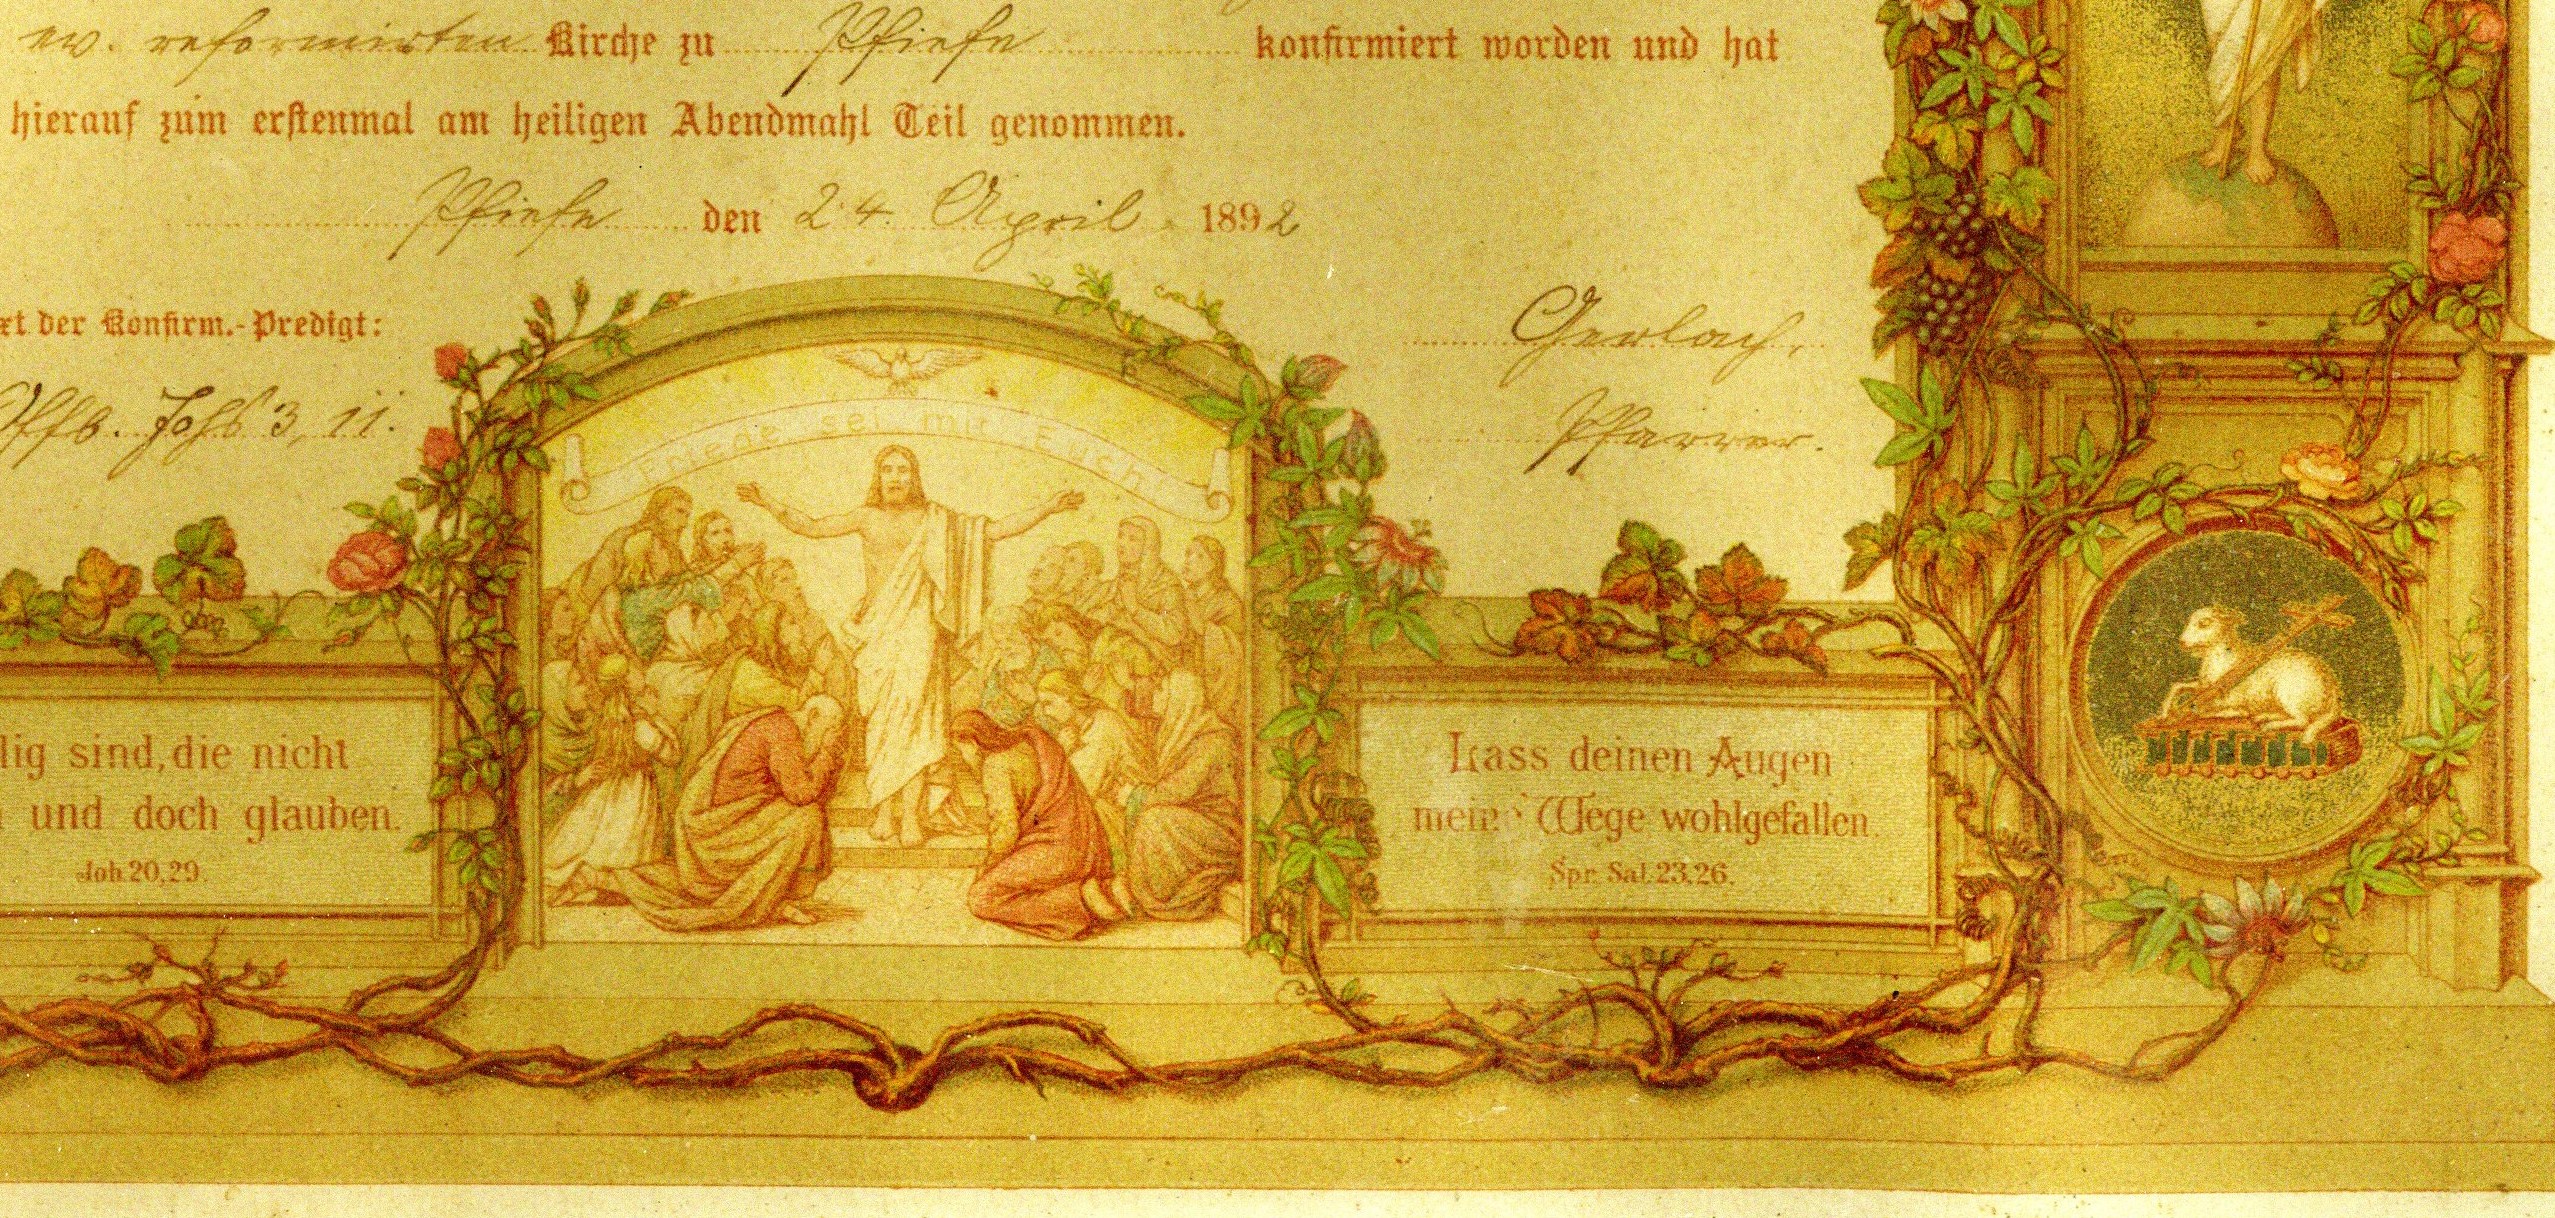 ev. reformirten Kirche zu Pfiefe konfirmiert worden und hat
hierauf zum erstenmal am heiligen Abendmahl Teil genommen.
Pfiefe den 24. April 1892
der Konfirm.-Predigt:
Offb. Johs 3, 11.
Gerlach,
Pfarrer.
Friede sei mit Euch
lig sind, die nicht
und doch glauben.
Joh. 20, 29.
Lass deinen Augen
meine Wege wohlgefallen.
Spr. Sal. 23. 26.